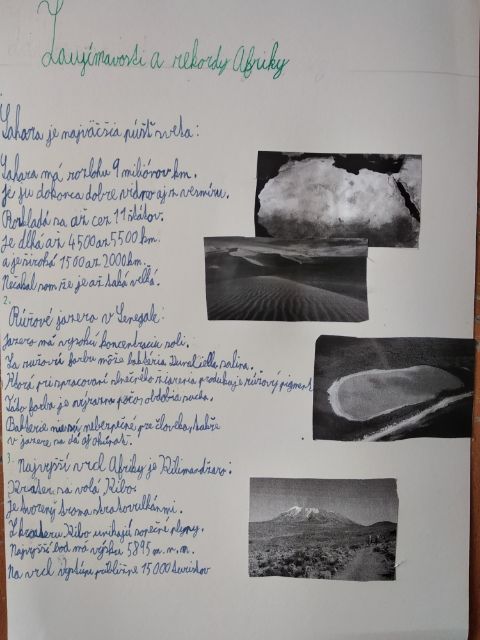 Zaujímavosti a rekordy Afriky
1.
Sahara je najväčšia púšť sveta:
Sahara má rozlohu 9 miliónov km.
Je ju dokonca dobre vidno aj z vesmíru.
Rozkladá sa až cez 11 štátov.
Je dlhá až 4500 až 5500 km.
a je široká 1500 až 2000 km.
Nečakal som že je až taká veľká.
2.
Ružové jazero v Senegale:
Jazero má vysokú koncentráciu soli.
Za ružovú farbu môže baktéria Dunaliella salina.
Ktorá pri spracovaní slnečného žiarenia produkuje ružový pigment
Táto farba je výrazná počas obdobia sucha.
Baktérie nie sú nebezpečné pre človeka, takže
v jazere sa dá aj okúpať.
3. Najvyšší vrch Afriky je Kilimandžaro:
Kráter sa volá Kibo.
Je tvorený troma stratovulkánmi.
Z kráteru Kibo unikajú sopečné plyny.
Najvyšší bod má výšku 5895 m.n.m.
Na vrch vystúpi približne 15 000 turistov